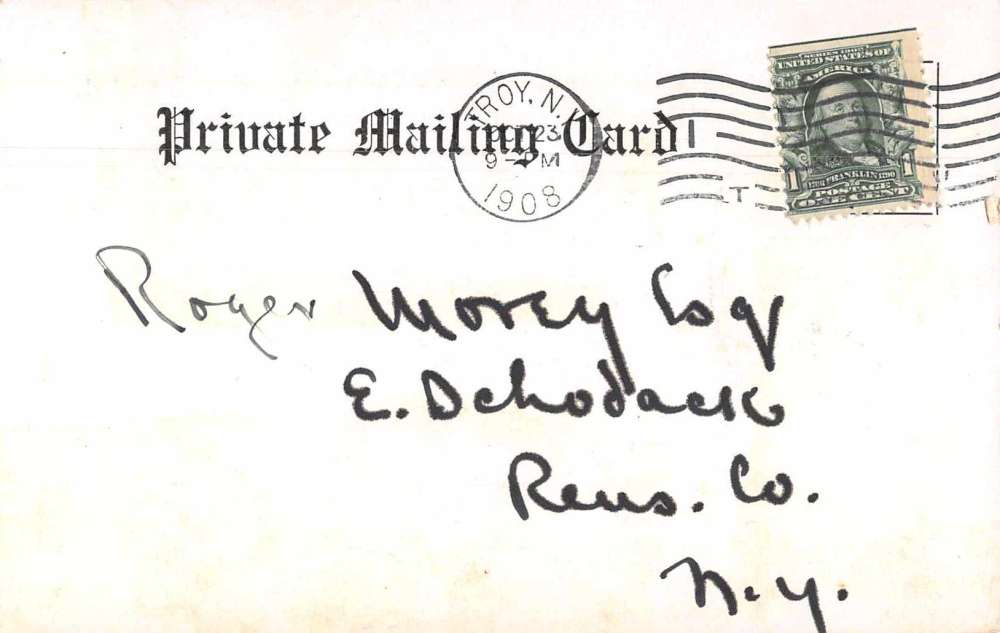 SERIES 1902
UNITED STATES OF
AMERICA
TROY, N.Y.
23
9- PM
1908
Private Mailing Card
1706 FRANKLIN 1790
1 POSTAGE 1
ONE CENT
Roger Morey Esq
E. Schodack
Rens. Co.
N.Y.